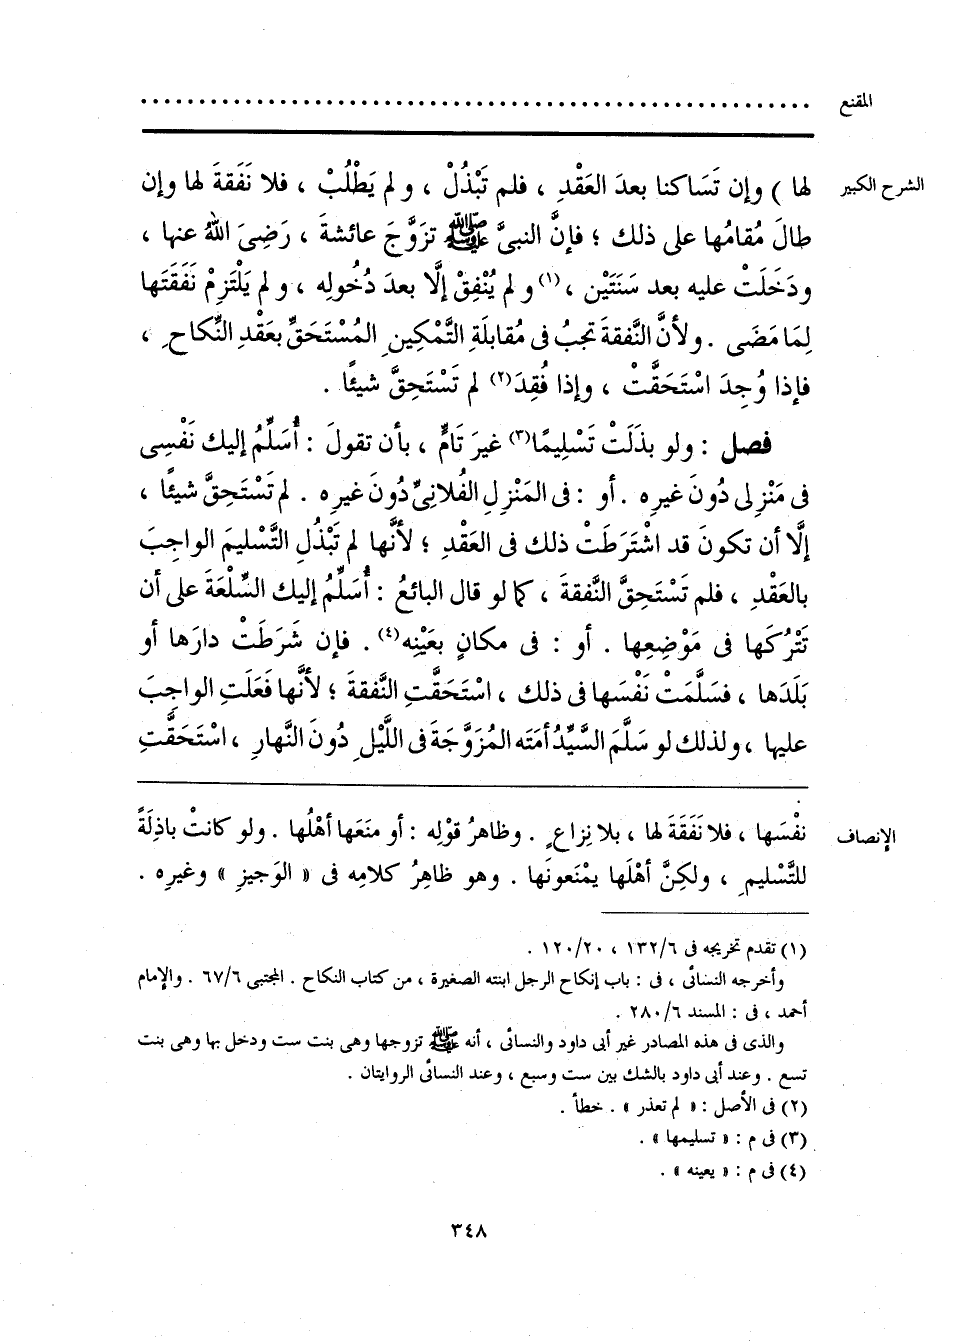 المقنع ............................................................
الشرح الكبير لها ) وإن تَسَاكنا بعدَ العَقْدِ ، فلم تَبْذُلْ ، ولم يَطْلُبْ ، فلا نَفَقةَ لها وإن
طالَ مُقامُها على ذلك ؛ فإنَّ النبىَّ ﷺ تزوَّجَ عائشةَ ، رَضِىَ اللهُ عنها ،
ودَخَلَتْ عليه بعد سَنَتَيْن ،(١) ولم يُنْفِقْ إلَّا بعدَ دُخُولِه ، ولم يَلْتَزِمْ نَفَقَتَها
لِمَا مَضَى . ولأنَّ النَّفقةَ تجبُ فى مُقابلَةِ التَّمْكِينِ المُسْتَحَقِّ بعَقْدِ النِّكاحِ ،
فإذا وُجِدَ اسْتَحَقَّتْ ، وإذا فُقِدَ(٢) لم تَسْتَحِقَّ شيئًا .
فصل : ولو بذَلَتْ تَسْلِيمًا(٣) غيرَ تَامٍّ ، بأن تقولَ : أُسَلِّمُ إليك نَفْسِى
فى مَنْزِلى دُونَ غيرِه . أو : فى المَنْزِلِ الفُلانِىِّ دُونَ غيرِه . لم تَسْتَحِقَّ شيئًا ،
إلَّا أن تكونَ قد اشْتَرَطَتْ ذلك فى العَقْدِ ؛ لأنَّها لم تَبْذُلِ التَّسْليمَ الواجِبَ
بالعَقْدِ ، فلم تَسْتَحِقَّ النَّفقةَ ، كما لو قال البائعُ : أُسَلِّمُ إليك السِّلْعَةَ على أن
تَتْرُكَها فى مَوْضِعِها . أو : فى مكانٍ بعَيْنِه(٤) . فإن شَرَطَتْ دارَها أو
بَلَدَها ، فسَلَّمَتْ نَفْسَها فى ذلك ، اسْتَحَقَّتِ النَّفقةَ ؛ لأنَّها فَعَلَتِ الواجِبَ
عليها ، ولذلك لو سَلَّمَ السَّيِّدُ أمَتَه المُزَوَّجَةَ فى اللَّيْلِ دُونَ النَّهارِ ، اسْتَحَقَّتِ
الإنصاف نفْسَها ، فلا نَفَقَةَ لها ، بلا نِزاعٍ . وظاهرُ قوْلِه : أو منَعَها أهْلُها . ولو كانتْ باذِلَةً
للتَّسْليمِ ، ولكِنَّ أهْلَها يمْنَعونَها . وهو ظاهِرُ كلامِه فى « الوَجيزِ » وغيرِه .
(١) تقدم تخريجه فى ١٣٢/٦ ، ١٢٠/٢٠ .
وأخرجه النسائى ، فى : باب إنكاح الرجل ابنته الصغيرة ، من كتاب النكاح . المجتبى ٦٧/٦ . والإمام
أحمد ، فى : المسند ٢٨٠/٦ .
والذى فى هذه المصادر غير أبى داود والنسائى ، أنه ﷺ تزوجها وهى بنت ست ودخل بها وهى بنت
تسع . وعند أبى داود بالشك بين ست وسبع ، وعند النسائى الروايتان .
(٢) فى الأصل : « لم تعذر » . خطأ .
(٣) فى م : « تسليمها » .
(٤) فى م : « يعينه » .
٣٤٨